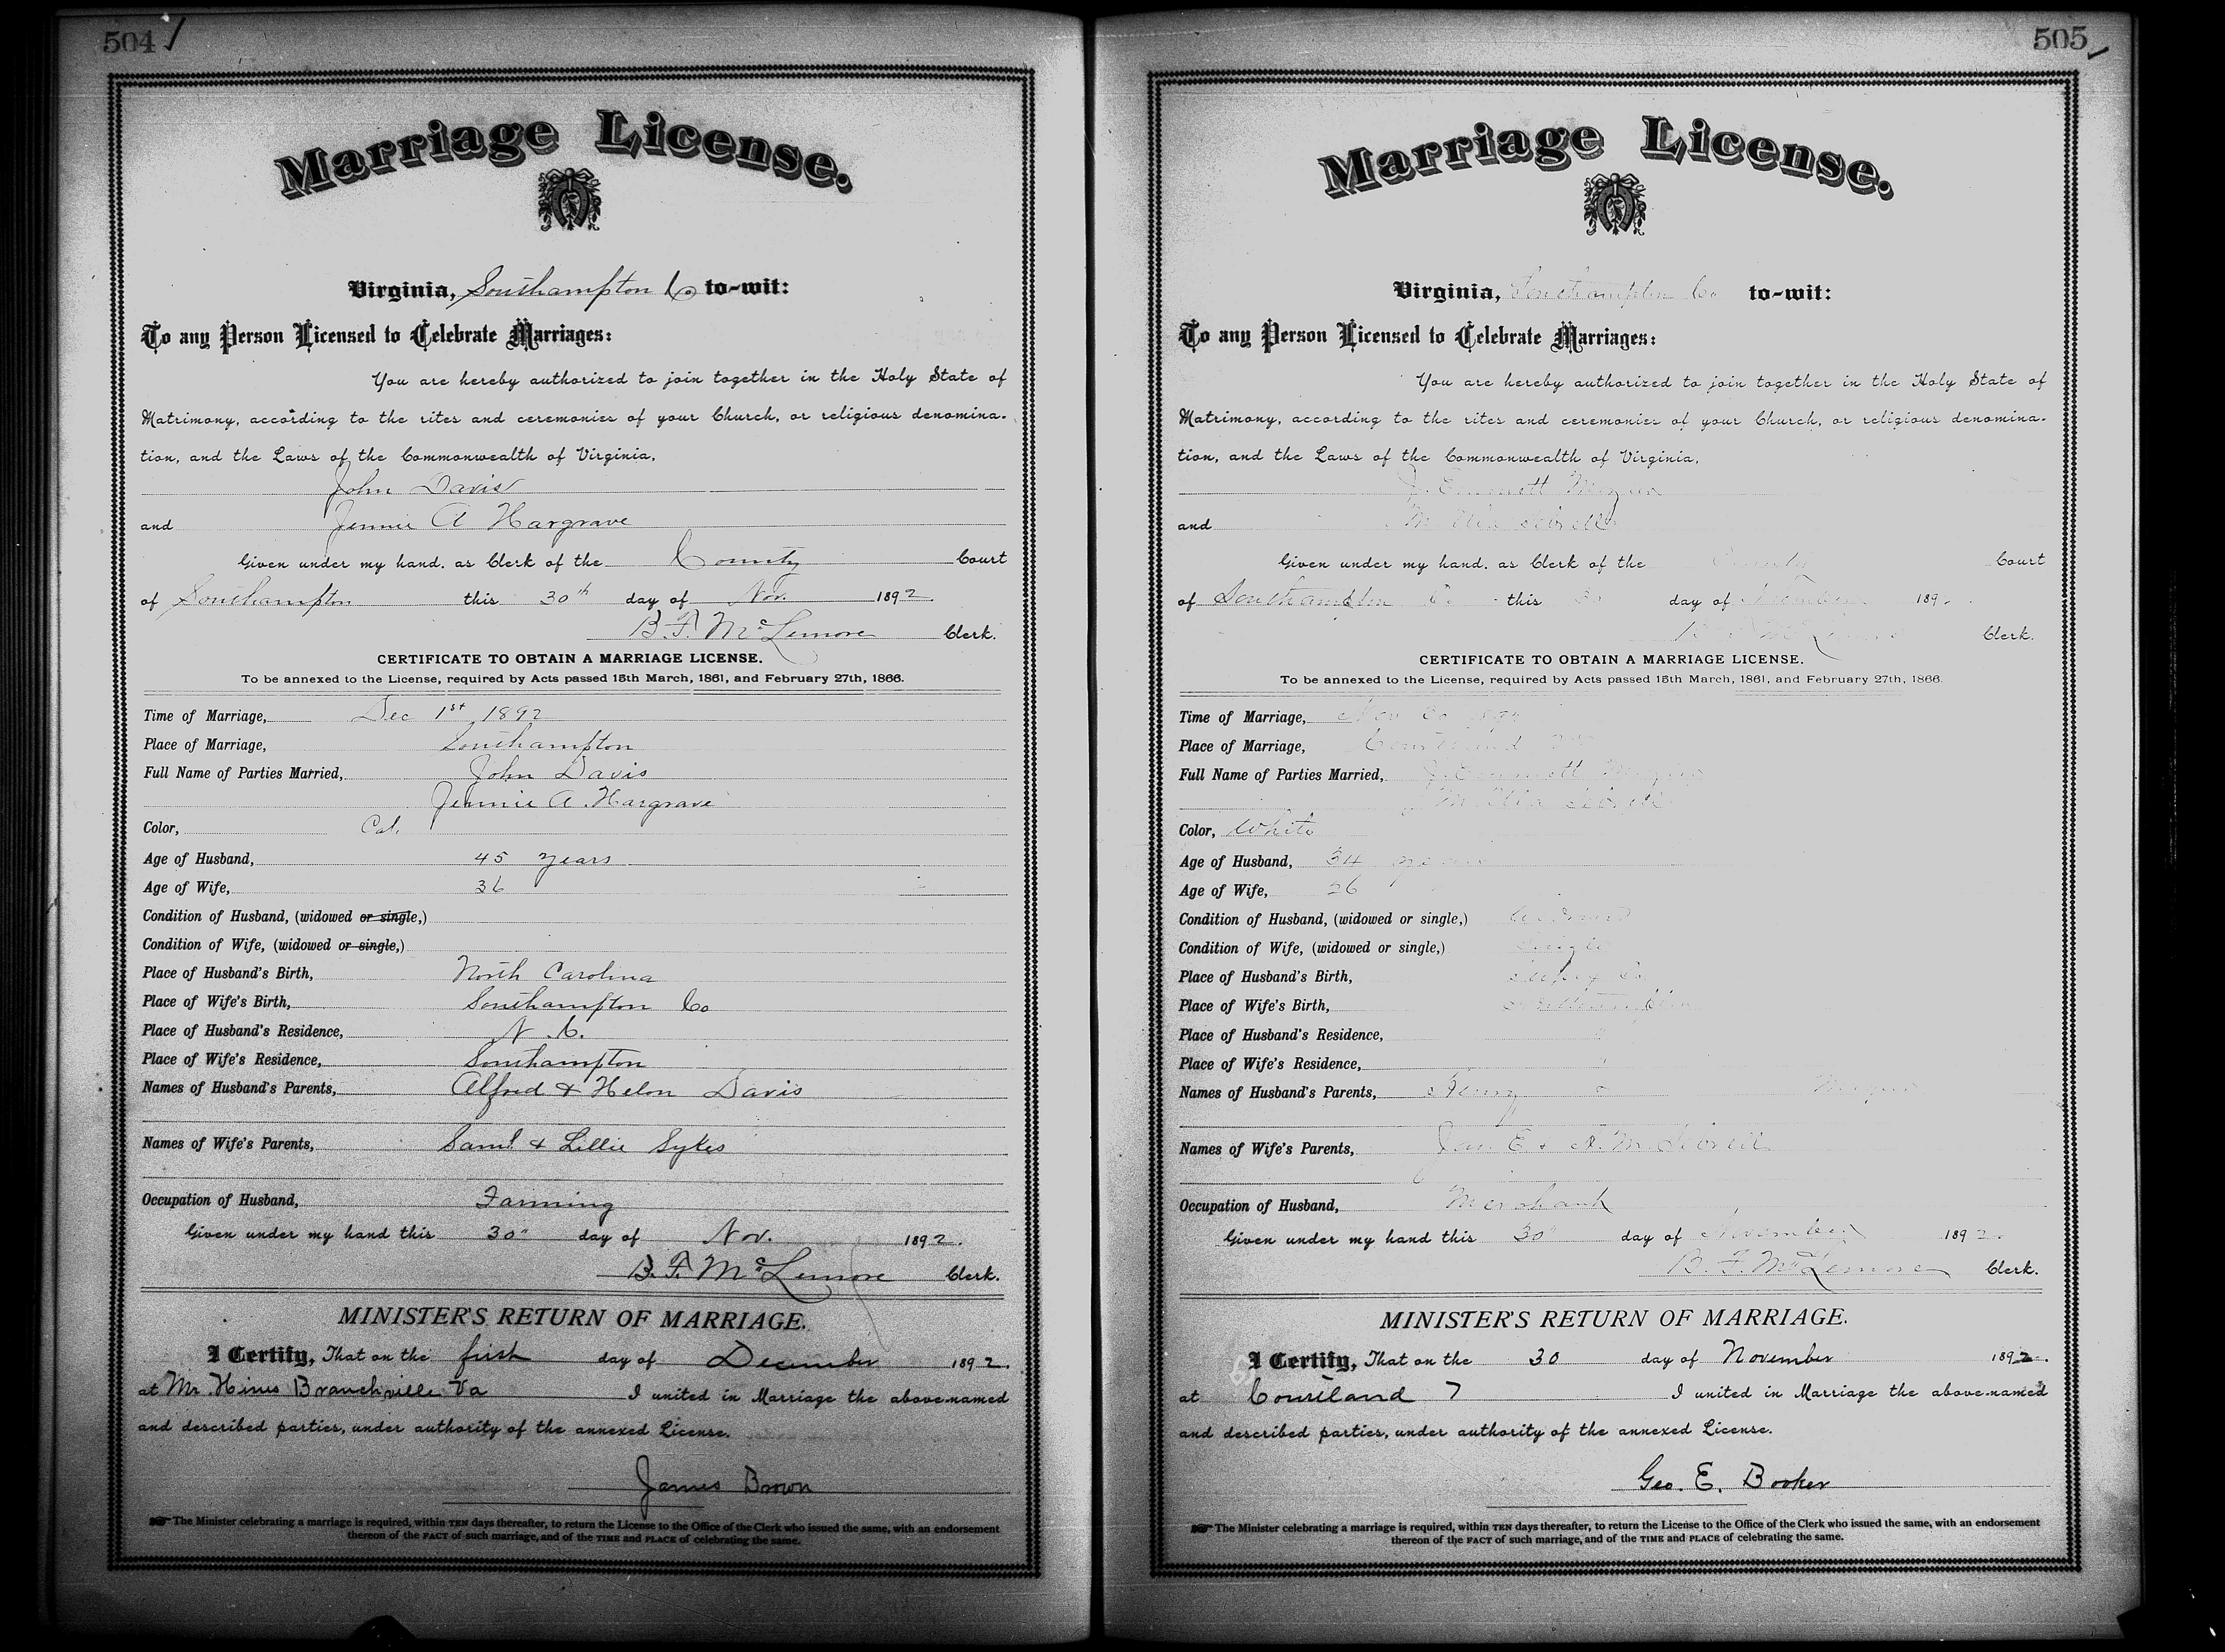 504
Marriage License.
Virginia, Southampton Co to-wit:
To any Person Licensed to Celebrate Marriages:
You are hereby authorized to join together in the Holy State of
Matrimony, according to the rites and ceremonies of your Church, or religious denomina-
tion, and the Laws of the Commonwealth of Virginia,
John Davis
and Jennie A Hargrave
Given under my hand, as Clerk of the County Court
of Southampton this 30th day of Nov. 1892.
B. F. McLemore Clerk.
CERTIFICATE TO OBTAIN A MARRIAGE LICENSE.
To be annexed to the License, required by Acts passed 15th March, 1861, and February 27th, 1866.
Time of Marriage, Dec 1st 1892
Place of Marriage, Southampton
Full Name of Parties Married, John Davis
Jennie A. Hargrave
Color, Col.
Age of Husband, 45 years
Age of Wife, 36
Condition of Husband, (widowed or single,)
Condition of Wife, (widowed or single,)
Place of Husband's Birth, North Carolina
Place of Wife's Birth, Southampton Co
Place of Husband's Residence, N. C.
Place of Wife's Residence, Southampton
Names of Husband's Parents, Alfred & Helon Davis
Names of Wife's Parents, Saml. & Lillie Sykes
Occupation of Husband, Farming
Given under my hand this 30" day of Nov. 1892.
B. F. McLemore Clerk.
MINISTER'S RETURN OF MARRIAGE.
I Certify, That on the first day of December 1892.
at Mr. Hines Branchville Va I united in Marriage the above-named
and described parties, under authority of the annexed License.
James Brown
The Minister celebrating a marriage is required, within TEN days thereafter, to return the License to the Office of the Clerk who issued the same, with an endorsement
thereon of the FACT of such marriage, and of the TIME and PLACE of celebrating the same.
505
Marriage License.
Virginia, Southampton Co. to-wit:
To any Person Licensed to Celebrate Marriages:
You are hereby authorized to join together in the Holy State of
Matrimony, according to the rites and ceremonies of your Church, or religious denomina-
tion, and the Laws of the Commonwealth of Virginia,
J. Emmett
and M Ella Sebrell
Given under my hand, as Clerk of the County Court
of Southampton Co. this 30 day of November 189
B. F. McLemore Clerk.
CERTIFICATE TO OBTAIN A MARRIAGE LICENSE.
To be annexed to the License, required by Acts passed 15th March, 1861, and February 27th, 1866.
Time of Marriage, Nov 30 189
Place of Marriage, Courtland
Full Name of Parties Married, J. Emmett
M Ella Sebrell
Color, White
Age of Husband, 34 years
Age of Wife, 26
Condition of Husband, (widowed or single,) Widowed
Condition of Wife, (widowed or single,) Single
Place of Husband's Birth,
Place of Wife's Birth, Southampton
Place of Husband's Residence, "
Place of Wife's Residence, "
Names of Husband's Parents, Henry
Names of Wife's Parents, Jas. E & M Sebrell
Occupation of Husband, Merchant
Given under my hand this 30" day of November 1892.
B. F. McLemore Clerk.
MINISTER'S RETURN OF MARRIAGE.
I Certify, That on the 30 day of November 1892.
at Courtland I united in Marriage the above-named
and described parties, under authority of the annexed License.
Geo. E. Booker
The Minister celebrating a marriage is required, within TEN days thereafter, to return the License to the Office of the Clerk who issued the same, with an endorsement
thereon of the FACT of such marriage, and of the TIME and PLACE of celebrating the same.